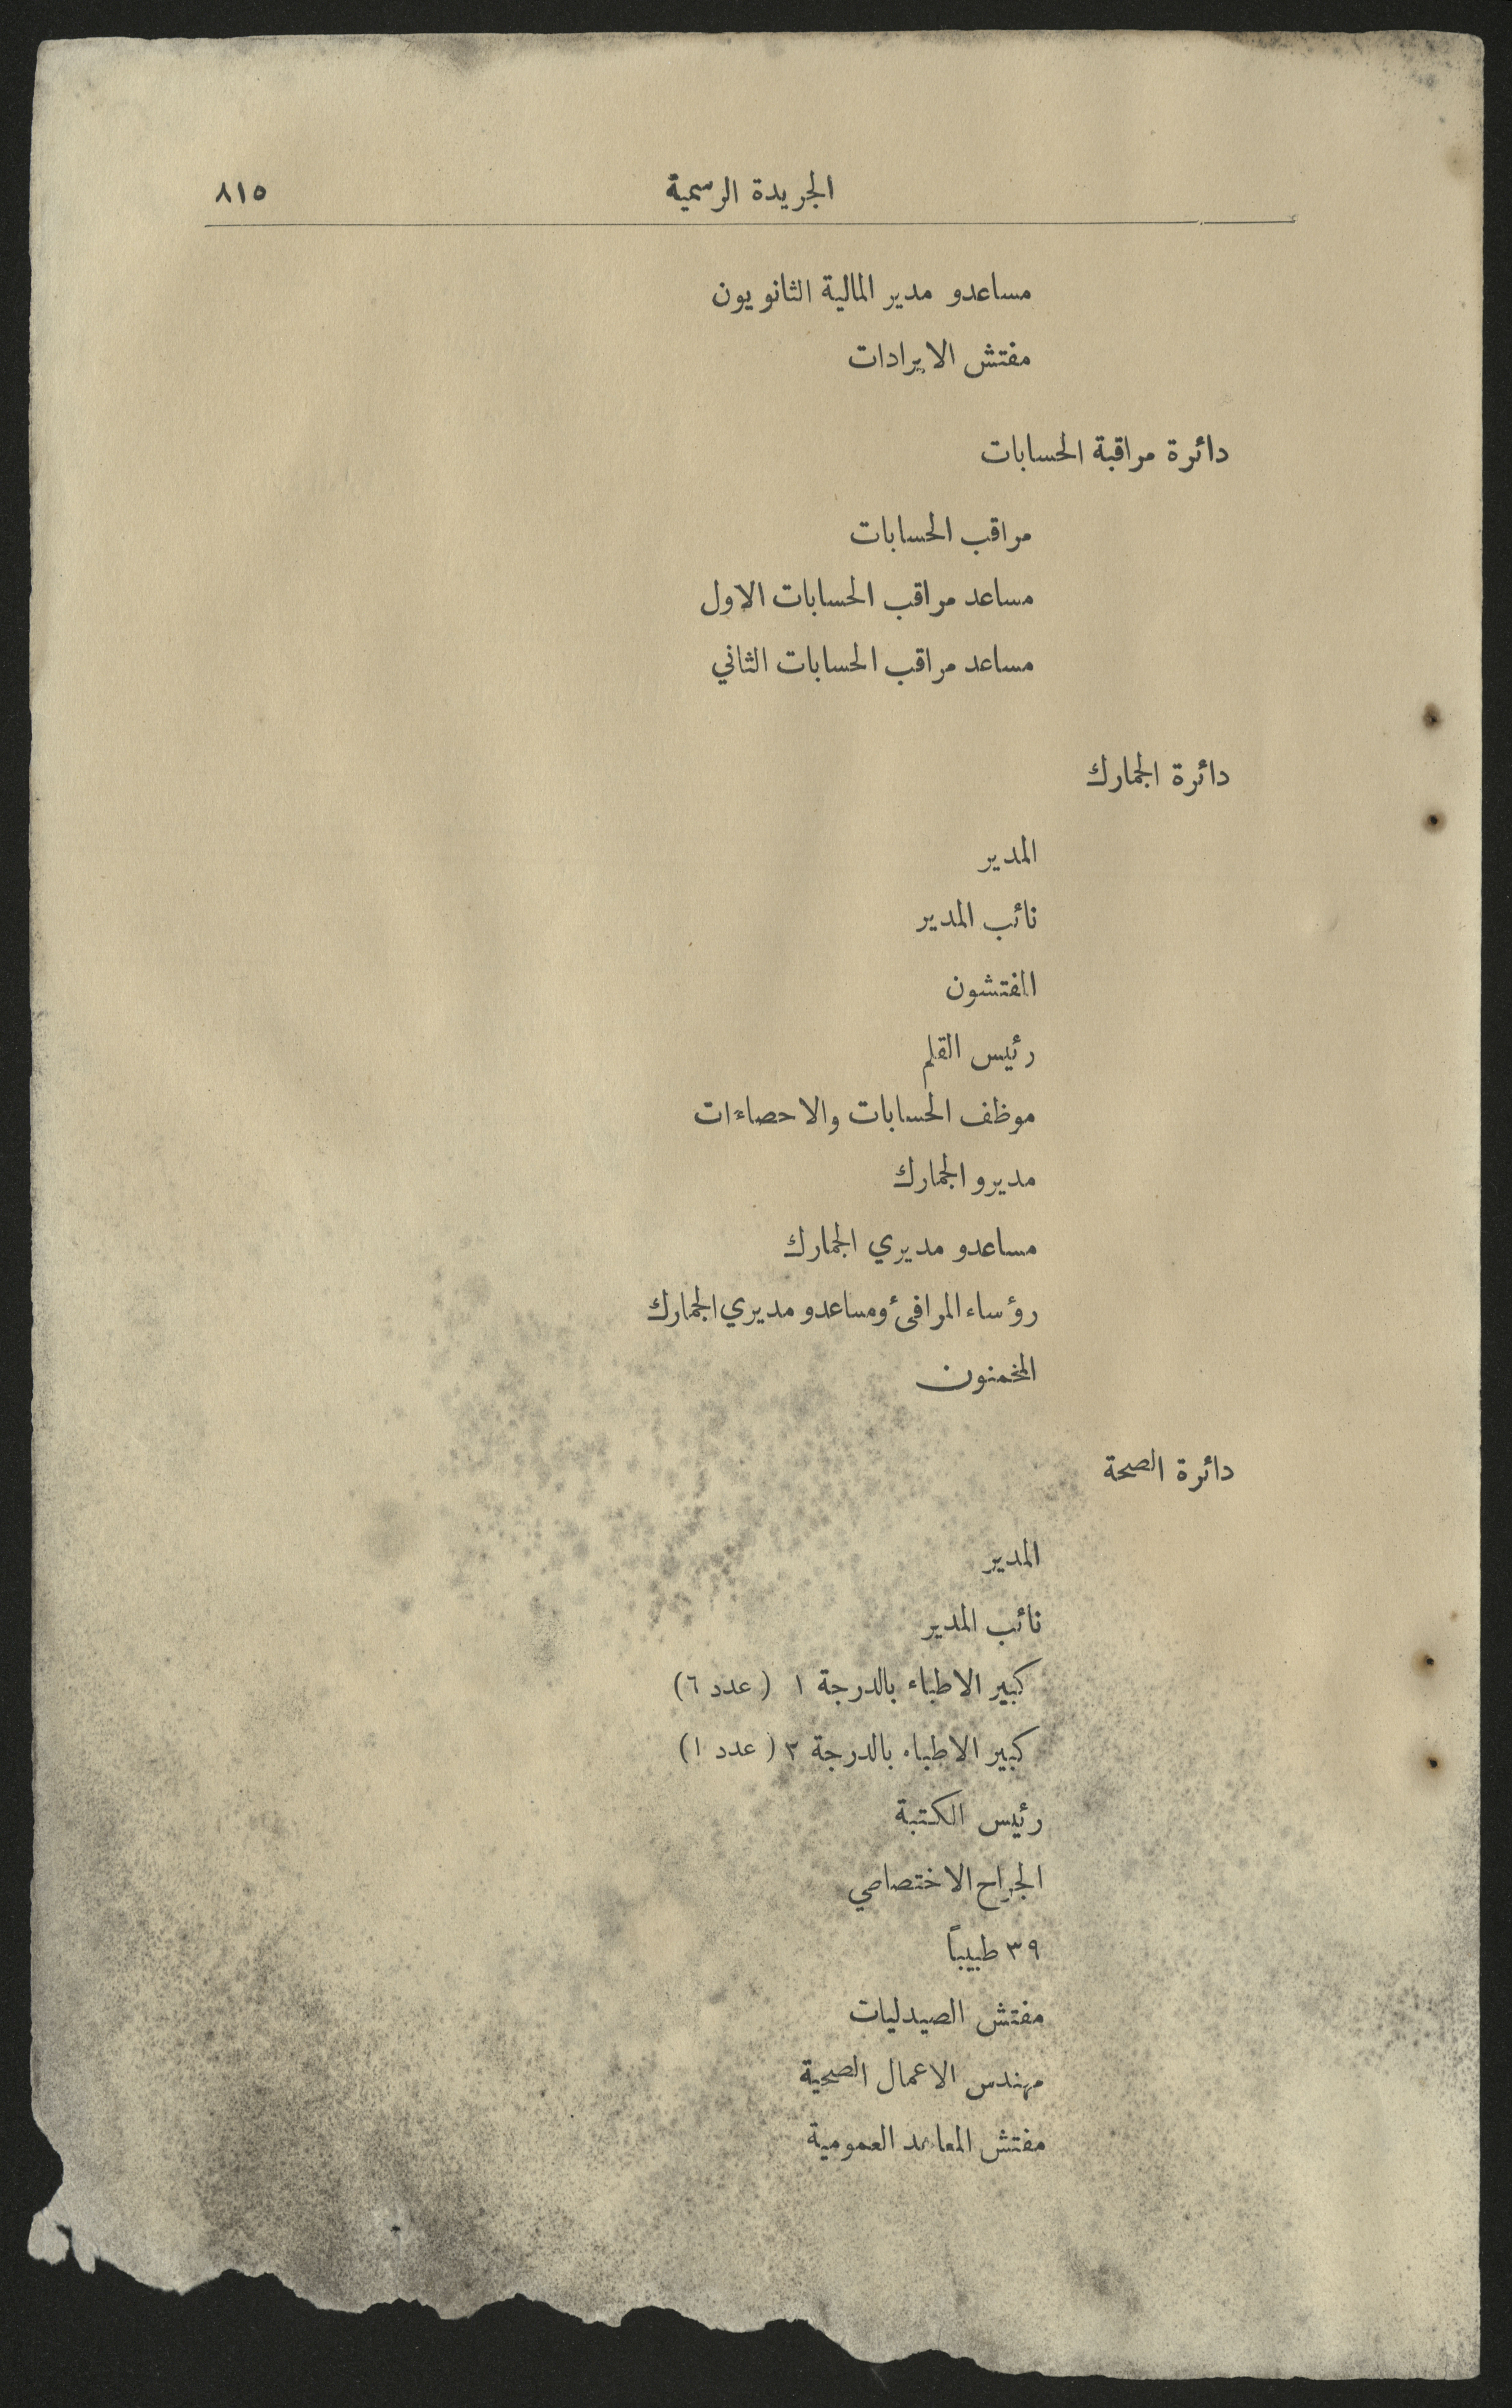 الجريدة الرسمية ٨١٥
مساعدو مدير المالية الثانويون
مفتش الايرادات
دائرة مراقبة الحسابات
مراقب الحسابات
مساعد مراقب الحسابات الاول
مساعد مراقب الحسابات الثاني
دائرة الجمارك
المدير
نائب المدير
المفتشون
رئيس القلم
موظف الحسابات والاحصاءات
مديرو الجمارك
مساعدو مديري الجمارك
رؤساء المرافئ ومساعدو مديري الجمارك
المخمنون
دائرة الصحة
المدير
نائب المدير
كبير الاطباء بالدرجة ١ (عدد ٦)
كبير الاطباء بالدرجة ٢ (عدد ١)
رئيس الكتبة
الجراح الاختصاصي
٣٩ طبيباً
مفتش الصيدليات
مهندس الاعمال الصحية
مفتش المعاهد العمومية